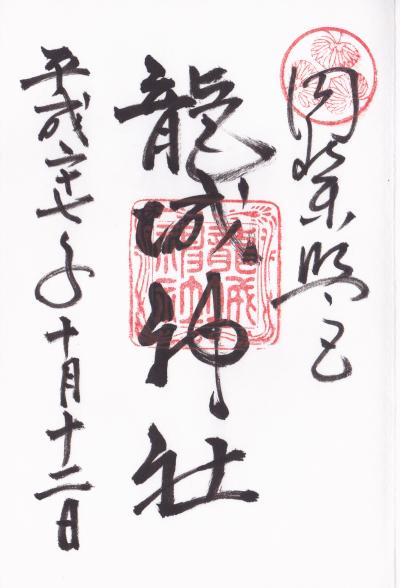 岡崎東照宮
龍城神社
龍城
神社
平成二十七年十月十二日